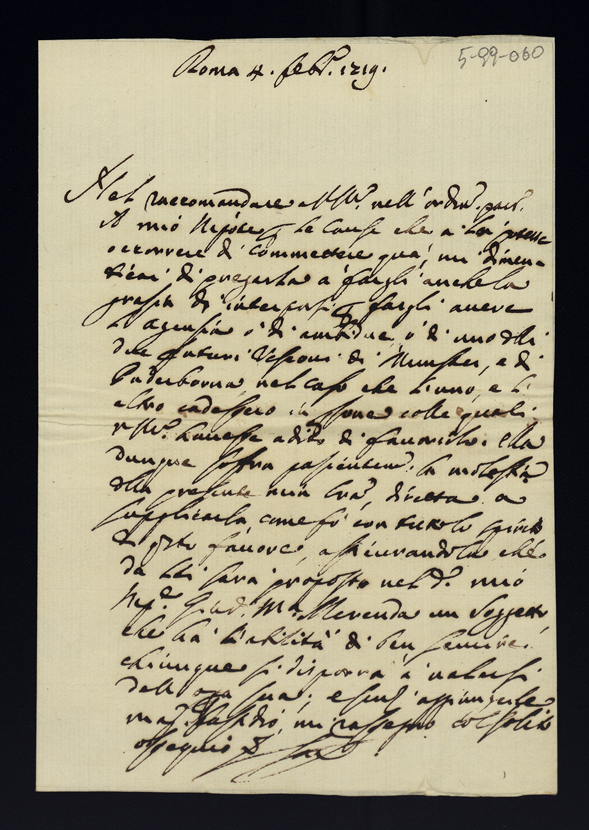 5-99-060
Roma 4. feb.º 1719.
Nel raccomandare nell' ordin.
il mio Nipote le Cause che a Lei
occorrere di commettere quà, mi dimen-
ticai di pregarla à fargli anche la
grazia di fargli avere
l'agenzia ò di ambidue, ò di uno delli
due futuri Vescovi di Munster, e di
Paderborna, nel caso che l'uno, e l'
altro cadessero in colle quali
havesse adito di favorirlo. Ella
dunque soffra pazientem.e la molestia
della presente mia, diretta a
supplicarla come fò con tutto lo spirito
di q.sto favore, assicurandola che
da Lei sarà proposto nel d.º mio
Nip.e Merenda un soggetto,
che hà l'abilità di ben servire
chiunque si disporrà à valersi
dell' opra sua; e
mi rassegno col solito
ossequio